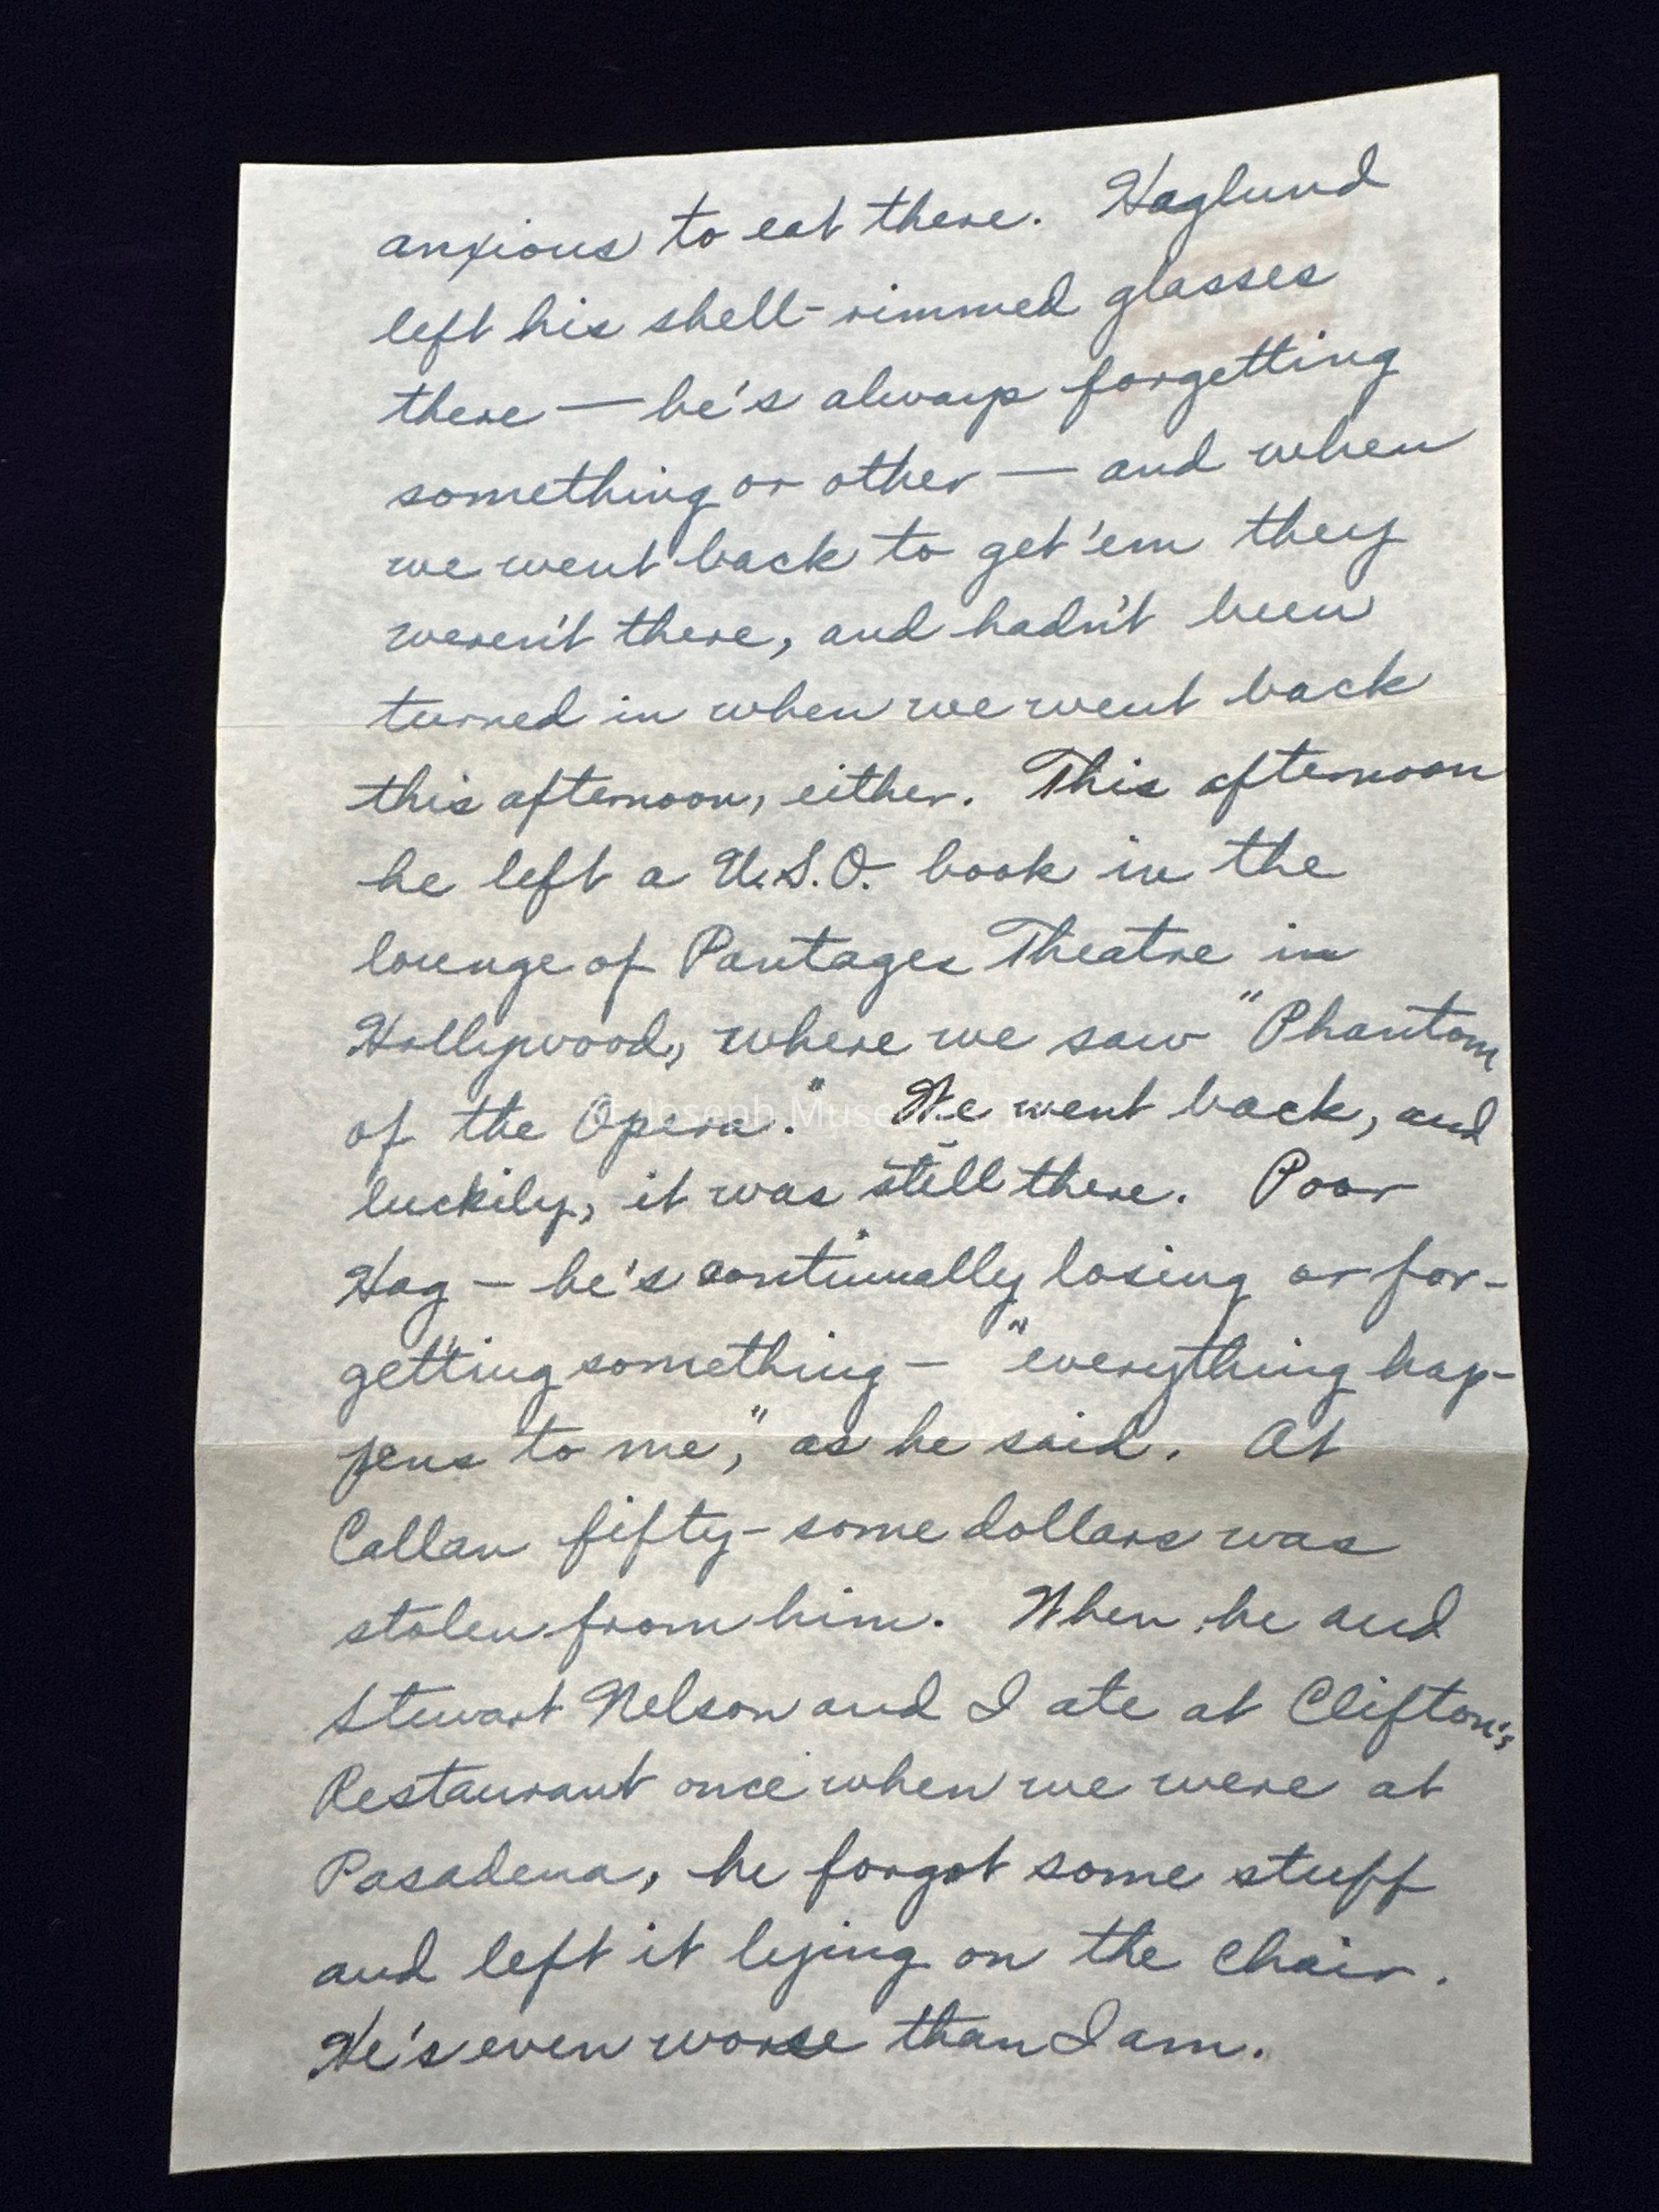 anxious to eat there. Haglund
left his shell-rimmed glasses
there — he's always forgetting
something or other — and when
we went back to get 'em they
weren't there, and hadn't been
turned in when we went back
this afternoon, either. This afternoon
he left a U.S.O. book in the
lounge of Pantages Theatre in
Hollywood, where we saw "Phantom
of the Opera." We went back, and
luckily, it was still there. Poor
Hag — he's continually losing or for-
getting something — "everything hap-
pens to me," as he said. At
Callan fifty-some dollars was
stolen from him. When he and
Stewart Nelson and I ate at Clifton's
Restaurant once when we were at
Pasadena, he forgot some stuff
and left it lying on the chair.
He's even worse than I am.